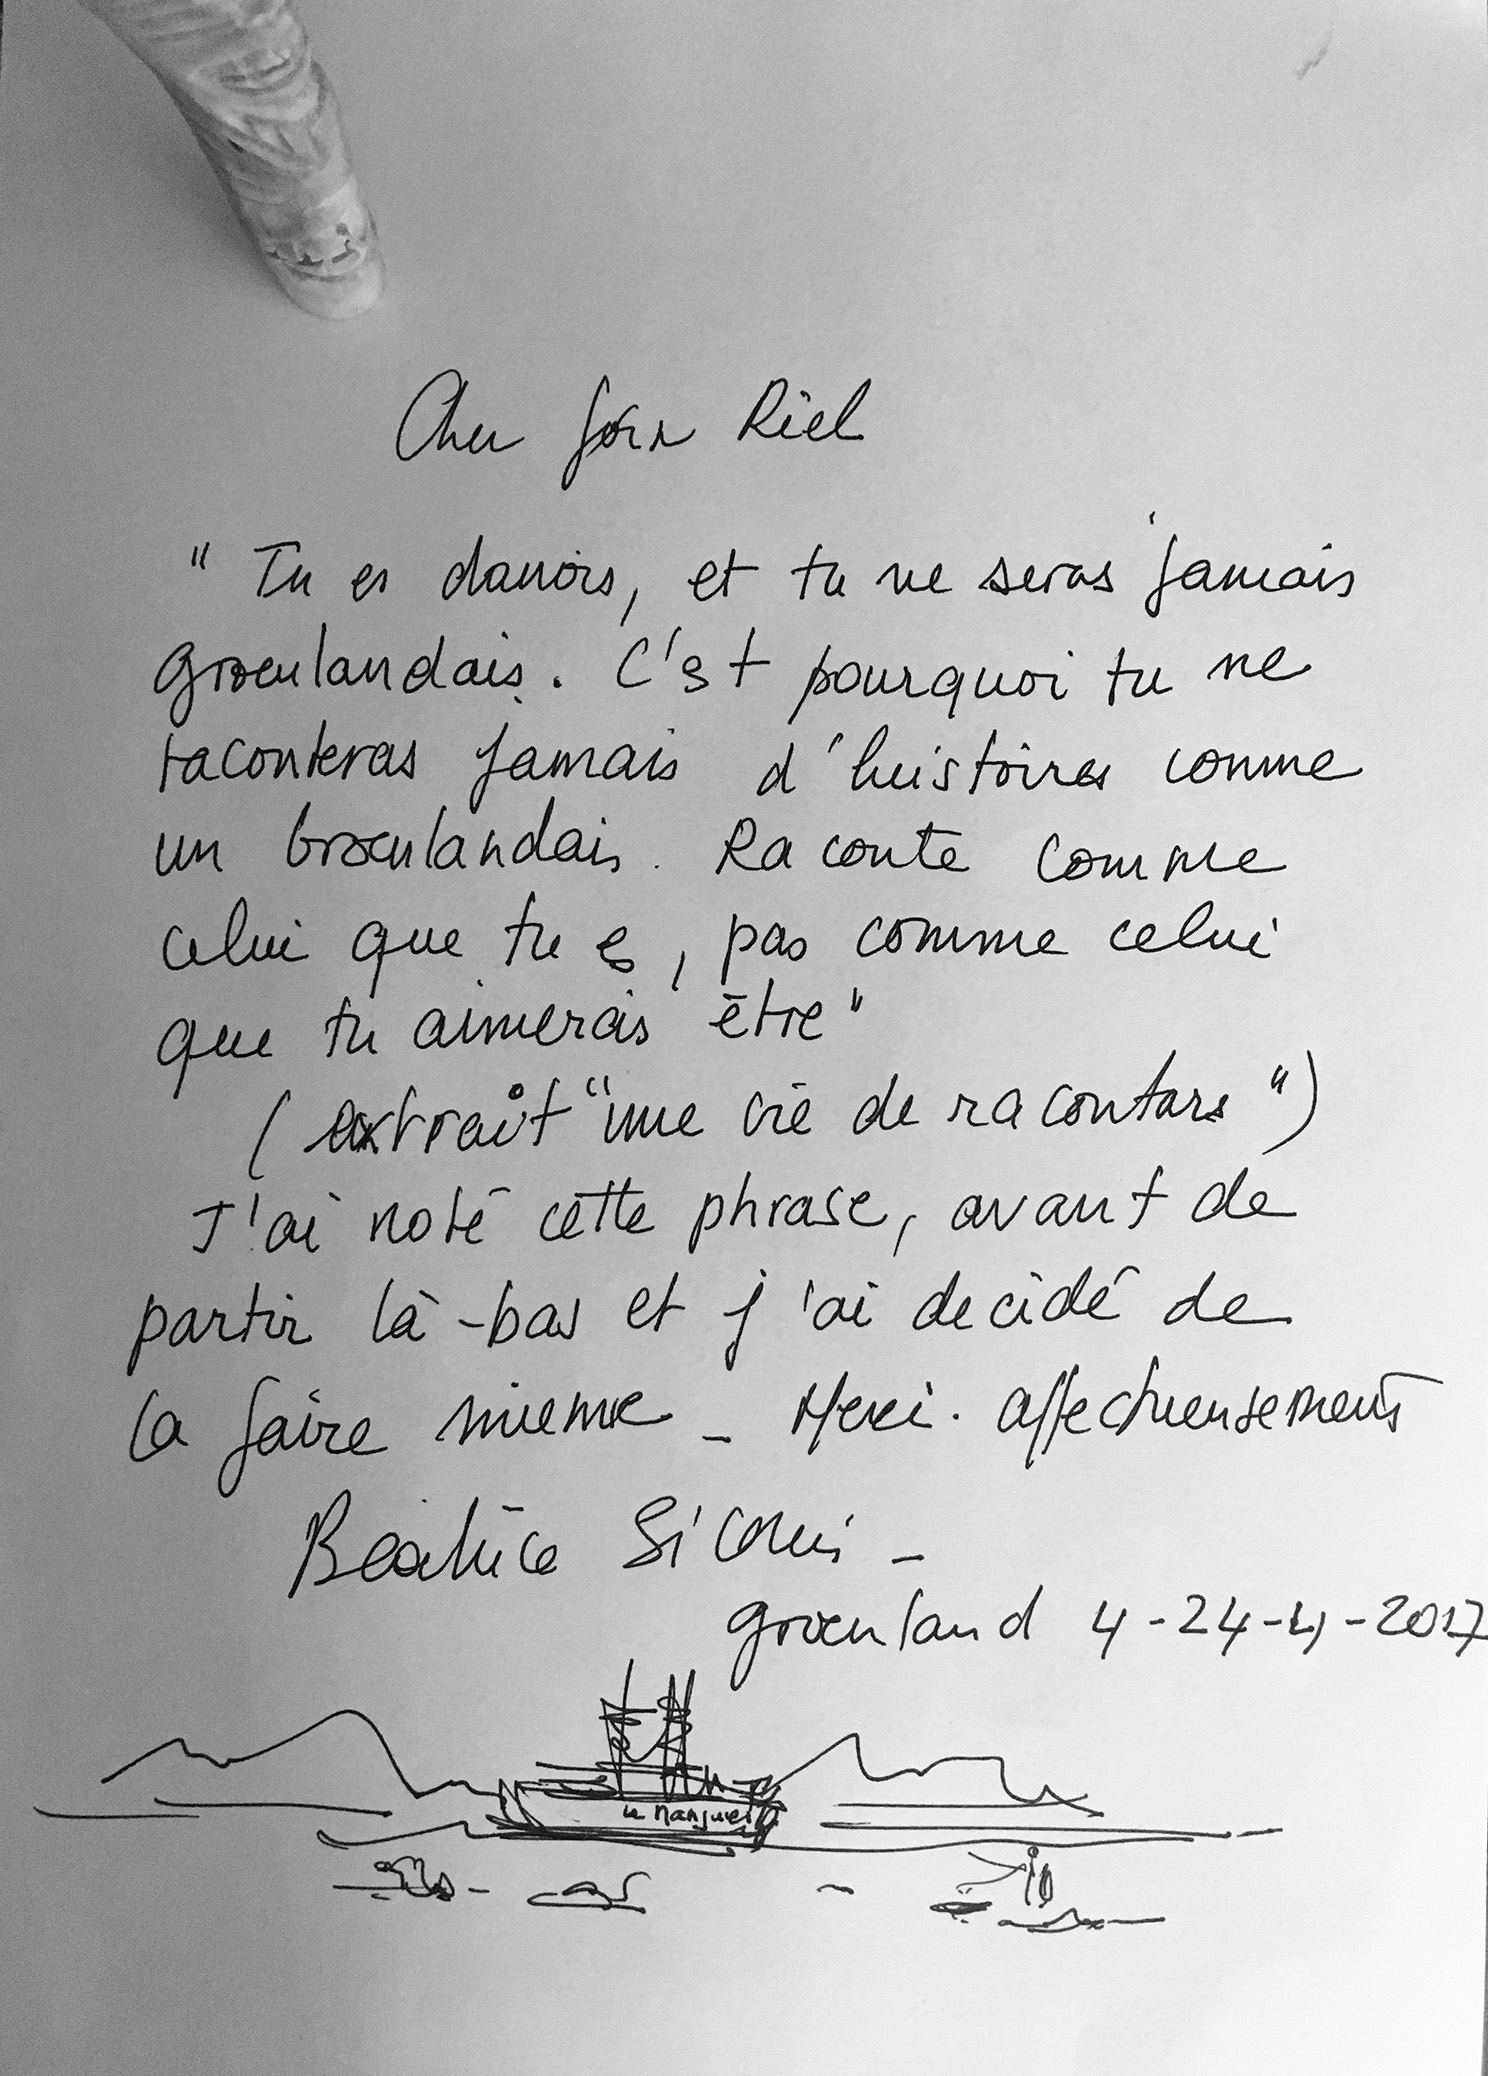 Cher Jörn Riel
"Tu es danois, et tu ne seras jamais
groenlandais. C'st pourquoi tu ne
raconteras jamais d'huistoires comme
un Groenlandais. Raconte comme
celui que tu es, pas comme celui
que tu aimerais être"
(extrait "une vie de racontars")
J'ai noté cette phrase, avant de
partir là-bas et j'ai decidé de
la faire mienne _ Merci. affectueusement
Beatrice
groenland 4-24-4-2017
le